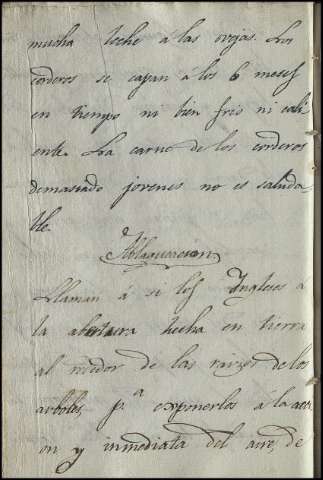 mucha leche á las ovejas. Los
corderos se capan á los 6 meses
en tiempo ni bien frio ni cali
ente. La carne de los corderos
demasiado jovenes no es saluda-
ble.
Ablaqueacion
Llaman á si los Ingleses a
la abertura hecha en tierra
al rredor de las raizes de los
arboles, pª exponerlos á la acci
on y inmediata del aire, de